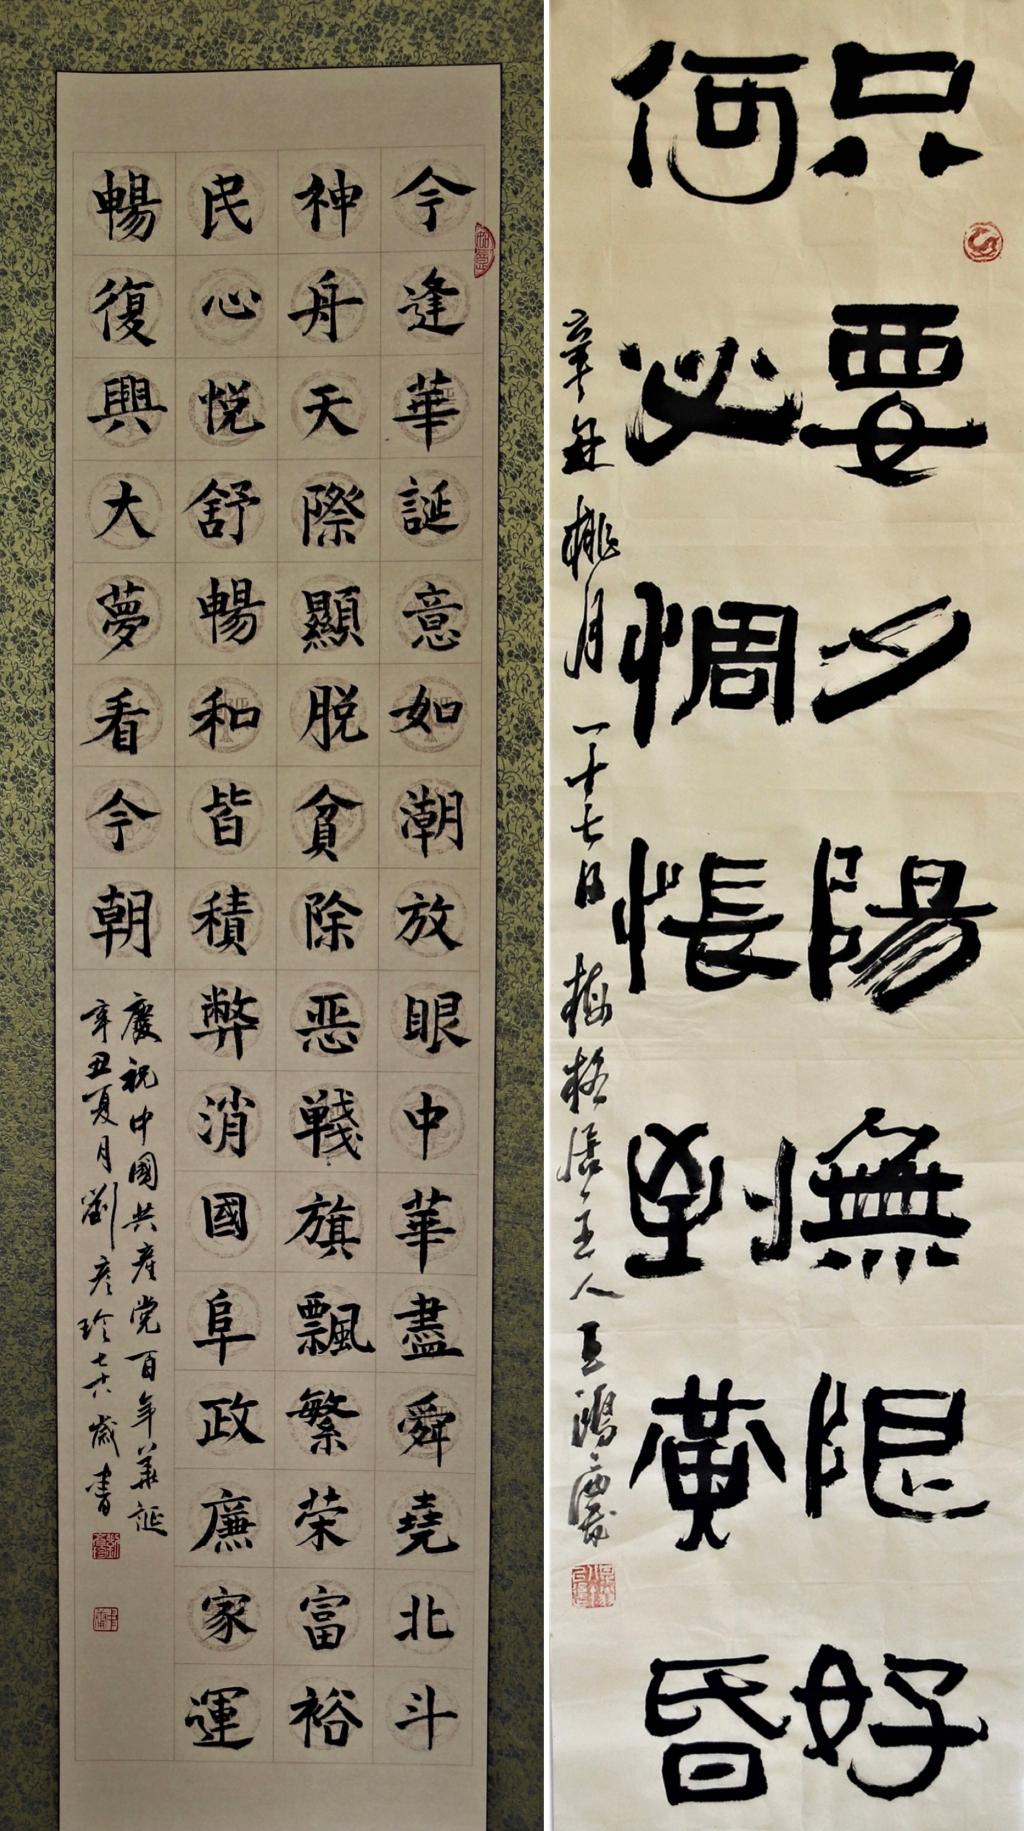 今逢華誕意如潮放眼中華盡舜堯北斗
神舟天際顯脱貧除恶戰旗飄繁荣富裕
民心悦舒暢和皆積弊消國阜政廉家運
暢復興大夢看今朝
慶祝中國共産党百年華誕
辛丑夏月劉彦玲七十六歲書
只要夕陽無限好
何必惆悵到黄昏
辛丑桃月一十七日